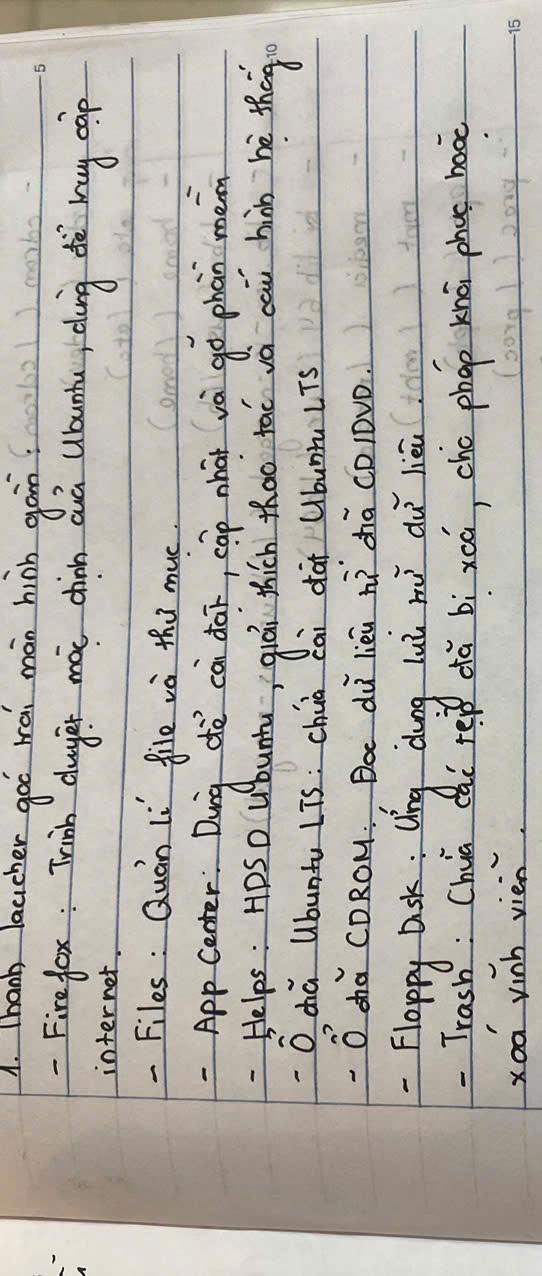 1. Thanh laucher góc trái màn hình gồm:
- Firefox: Trình duyệt mặc định của Ubuntu, dùng để truy cập
internet.
- Files: Quản lí file và thư mục.
- App Center: Dùng để cài đặt, cập nhật và gỡ phần mềm
- Helps: HDSD Ubuntu, giải thích thao tác và cấu hình hệ thống
- Ổ đĩa Ubuntu LTS: chứa cài đặt Ubuntu LTS
- Ổ đĩa CDROM: Đọc dữ liệu từ đĩa CD/DVD.
- Floppy Disk: Ứng dụng lưu trữ dữ liệu.
- Trash: Chứa các tệp đã bị xoá, cho phép khôi phục hoặc
xoá vĩnh viễn.
5
10
15